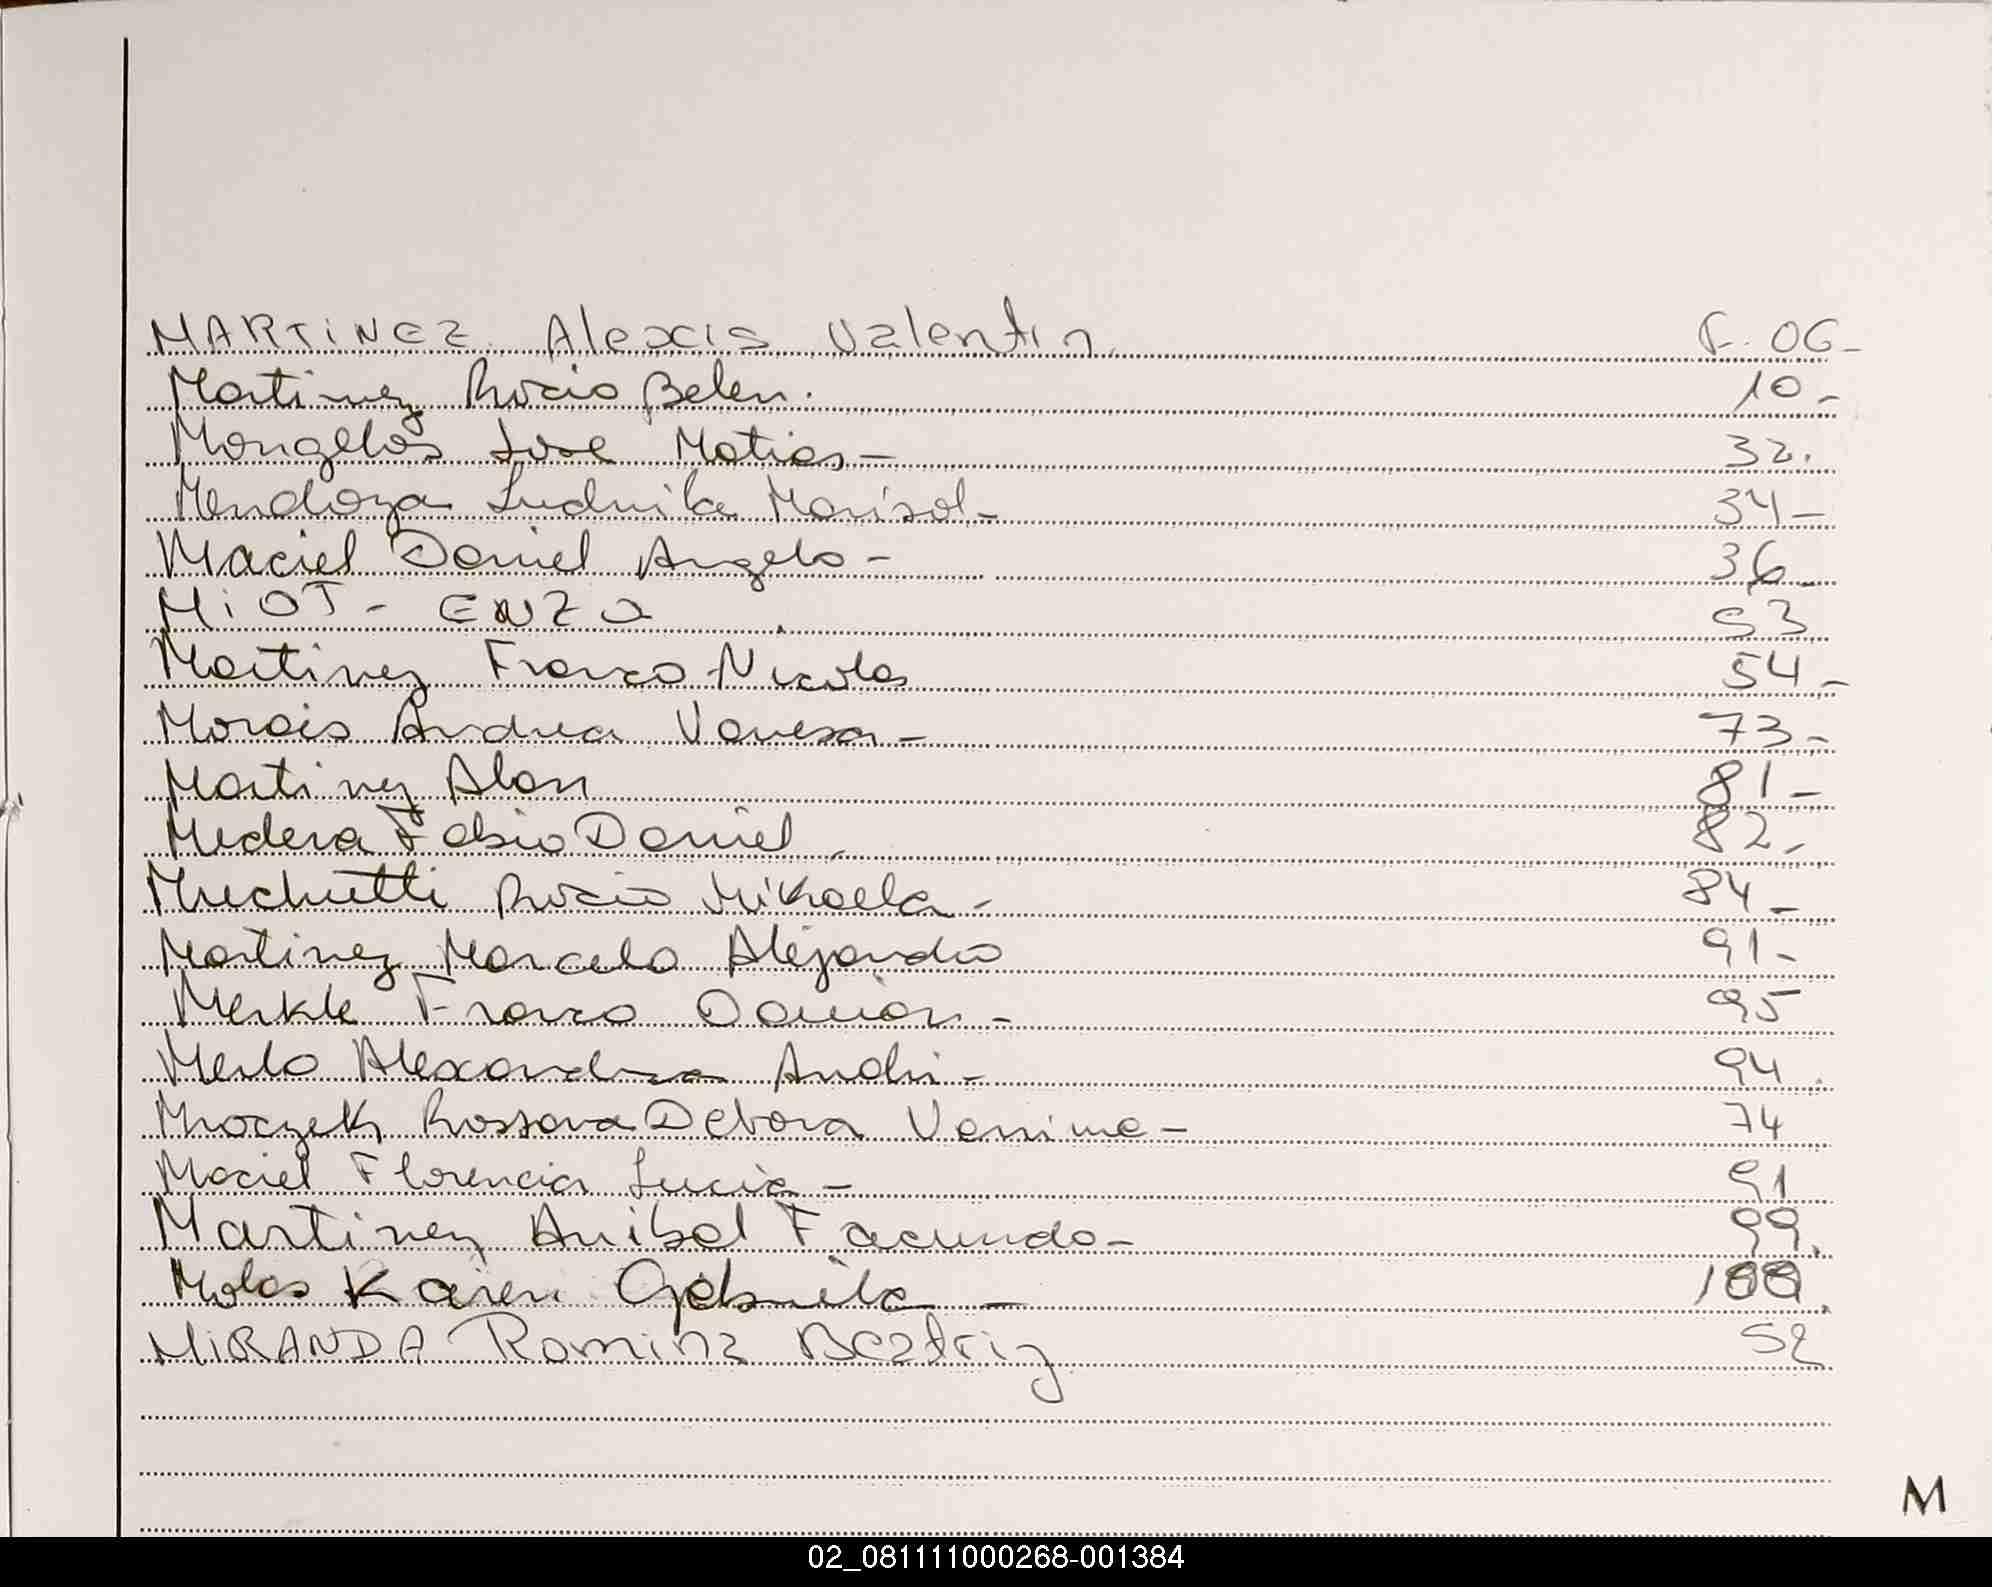 MARTINEZ Alexis Valentin F. 06-
Martinez Rocio Belen. 10-
Mongelos Jose Matias- 32.
Mendoza Ludmila Marisol- 34-
Maciel Daniel Angelo- 36-
MiOT- ENZO 53
Martinez Franco Nicolas 54-
Morais Andrea Vanesa- 73-
Martinez Alan 81-
Medera Fabio Daniel- 82-
Muchutti Rocio Mikaela- 84-
Martinez Marcelo Alejandro 91-
Merkle Franco Damian- 95
Merlo Alexandra Andri- 94.
Mroczek Rossana Debora Vanina- 74
Maciel Florencia Lucia- 91
Martinez Anibal Facundo- 99.
Molas Karen Gabriela- 100.
MiRANDA Romina Beatriz 52
M
02_081111000268-001384